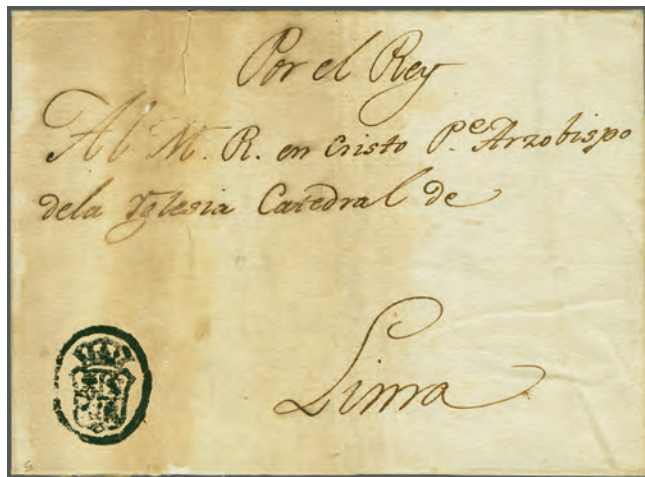 Por el Rey
Al M. R. en Cristo P.e Arzobispo
dela Yglesia Catedral de
Lima